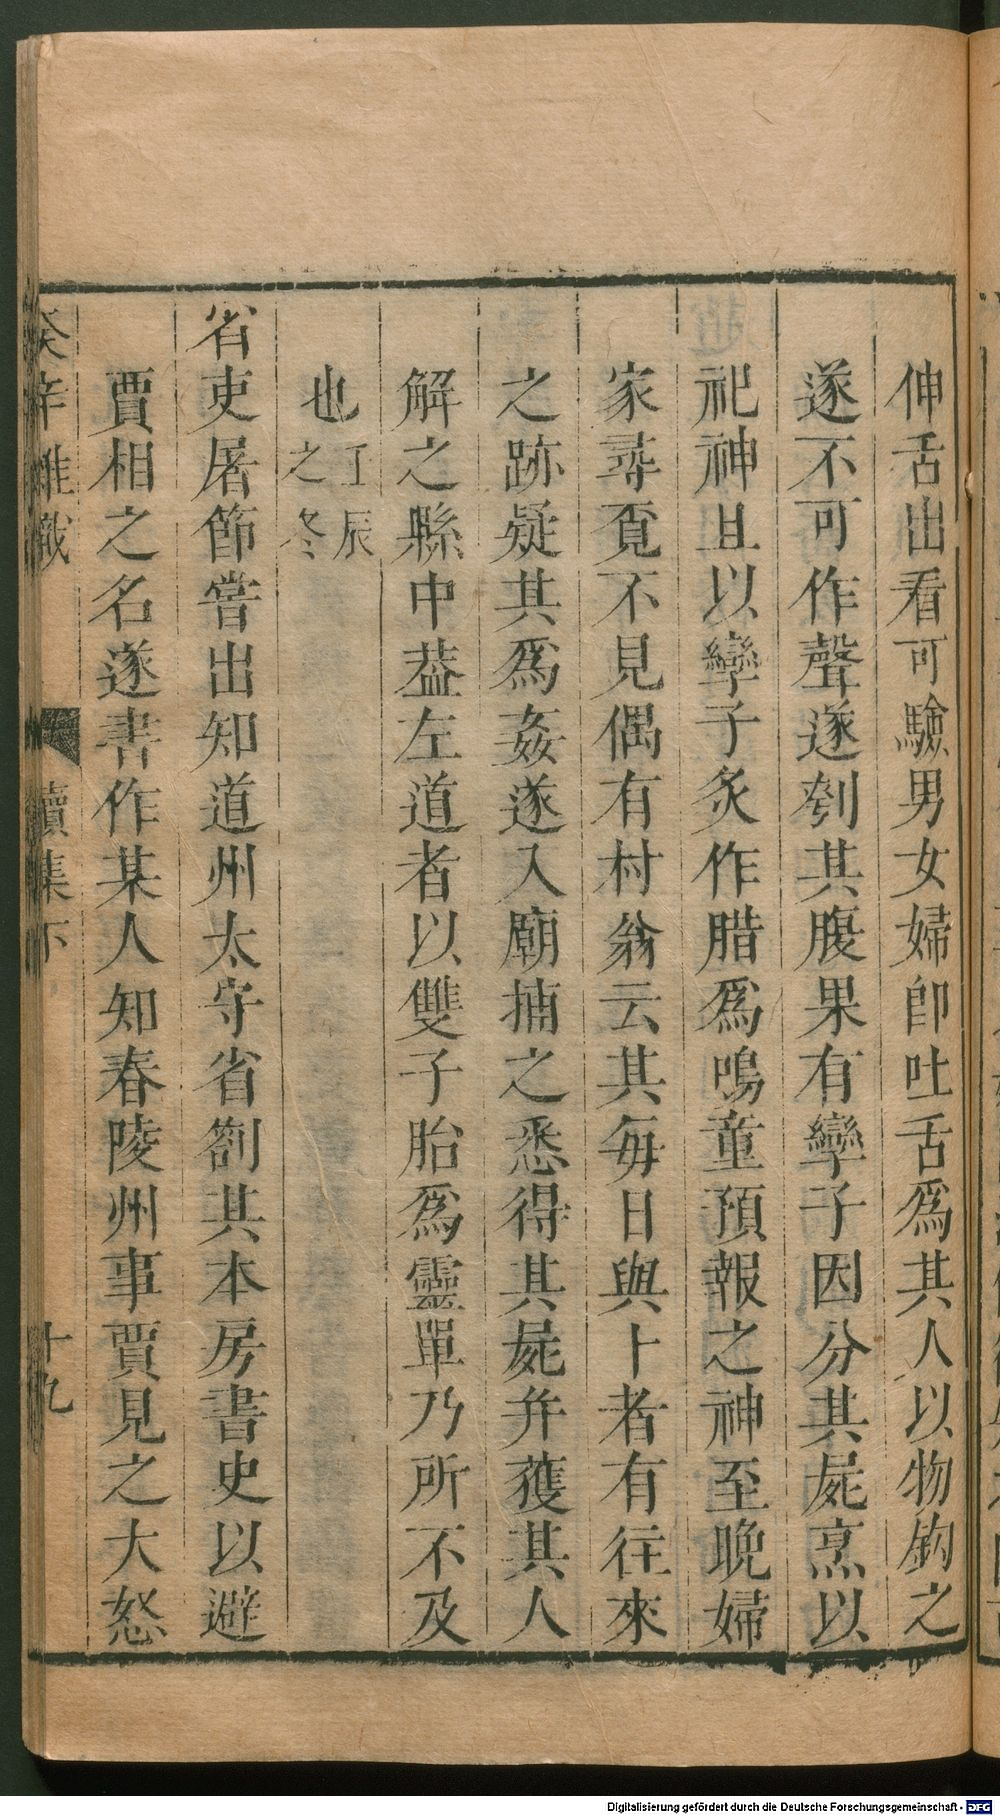 伸舌出看可驗男女婦卽吐舌爲其人以物鈎之
遂不可作聲遂刳其腹果有孿子因分其屍烹以
祀神且以孿子炙作腊爲鳴童預報之神至晚婦
家尋覓不見偶有村翁云其每日與卜者有往來
之跡疑其爲姦遂入廟捕之悉得其屍并獲其人
解之縣中葢左道者以雙子胎爲靈單乃所不及
也丁辰之冬
省吏屠節嘗出知道州太守省劄其本房書史以避
賈相之名遂書作某人知春陵州事賈見之大怒
癸辛雜識 續集下 十九
Digitalisierung gefördert durch die Deutsche Forschungsgemeinschaft - DFG